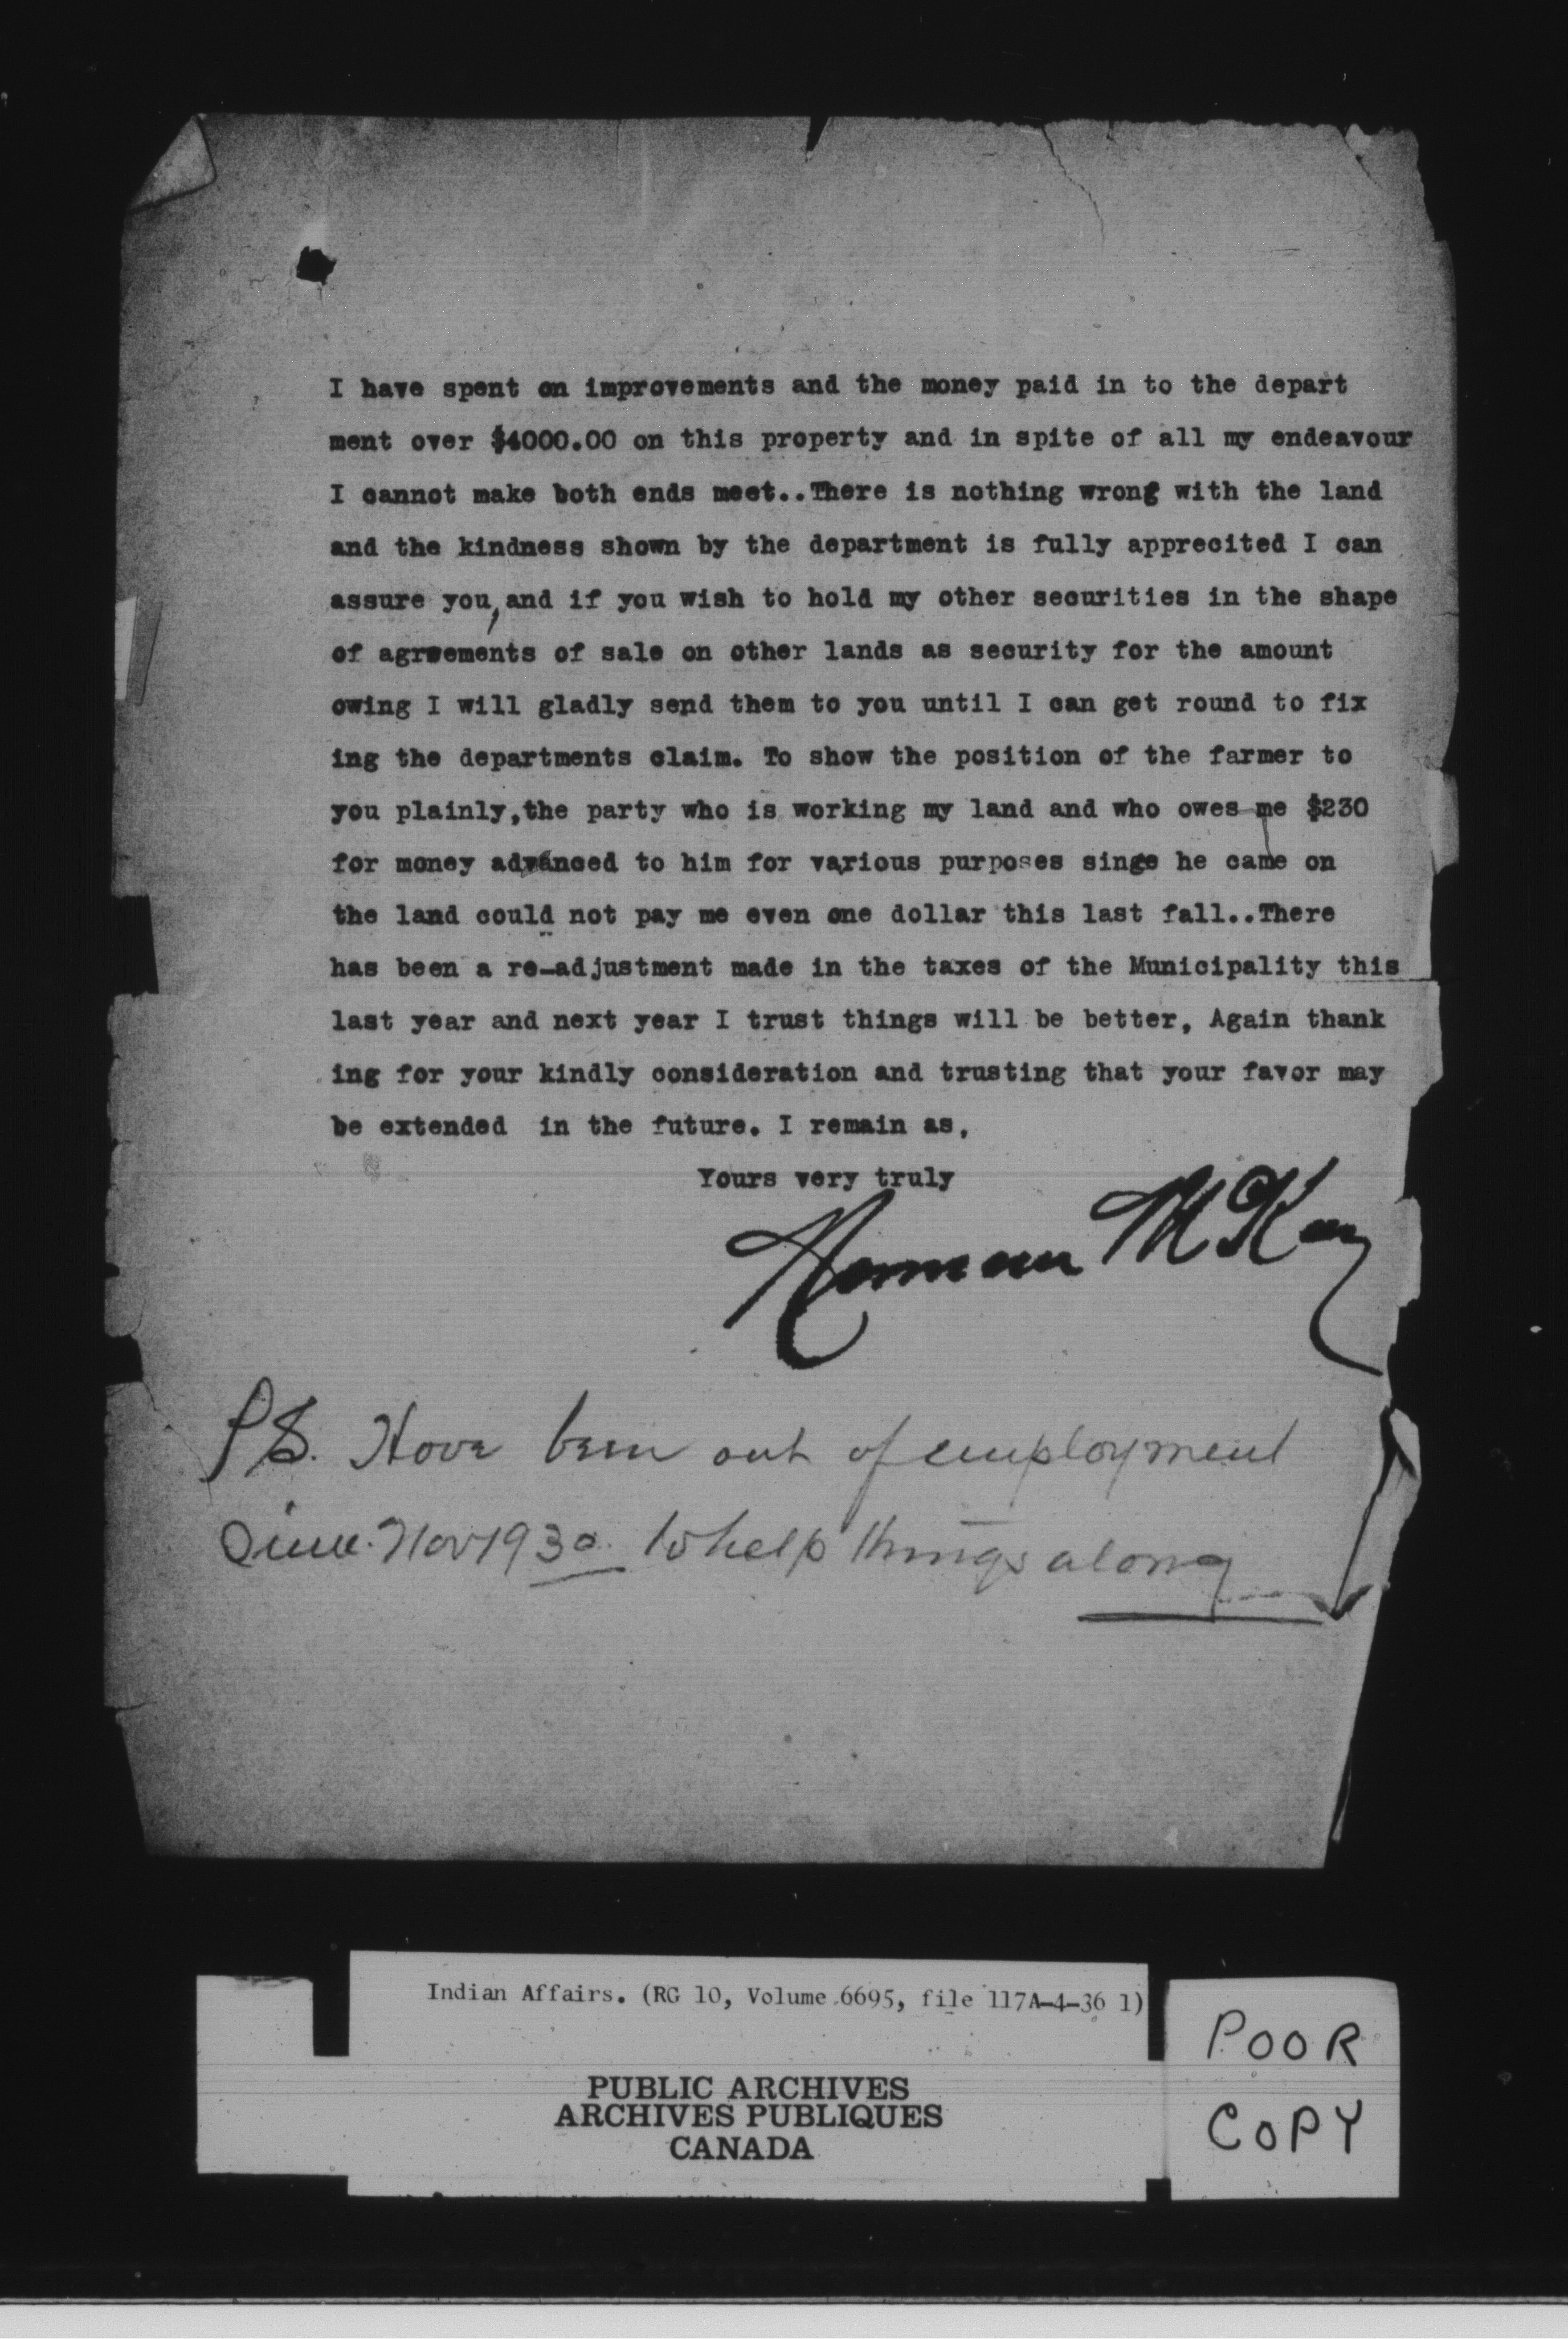 I have spent on improvements and the money paid in to the depart
ment over $4000.00 on this property and in spite of all my endeavour
I cannot make both ends meet..There is nothing wrong with the land
and the kindness shown by the department is fully apprecited I can
assure you, and if you wish to hold my other securities in the shape
of agreements of sale on other lands as security for the amount
owing I will gladly send them to you until I can get round to fix
ing the departments claim. To show the position of the farmer to
you plainly,the party who is working my land and who owes me $230
for money advanced to him for various purposes singe he came on
the land could not pay me even one dollar this last fall..There
has been a re-adjustment made in the taxes of the Municipality this
last year and next year I trust things will be better, Again thank
ing for your kindly consideration and trusting that your favor may
be extended in the future. I remain as,
Yours very truly
Norman McKay
PS. Have been out of employment
Since Nov 1930. to help things along
Indian Affairs. (RG 10, Volume 6695, file 117A-4-36 1)
PUBLIC ARCHIVES
ARCHIVES PUBLIQUES
CANADA
POOR
COPY